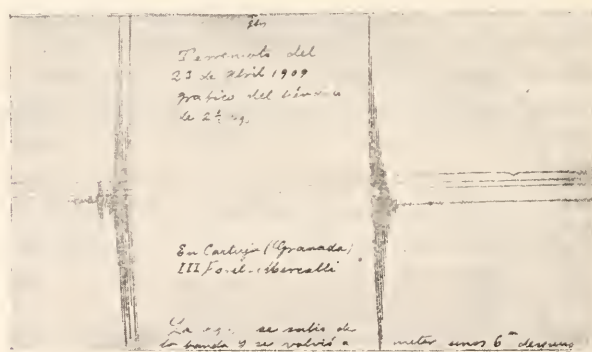 Terremoto del
23 de Abril 1909
grafico del
de 2
En Cartuja (Granada)
III Forel-Mercalli
La ag. se salio de
la banda y se volvió a meter unos 6 m despues